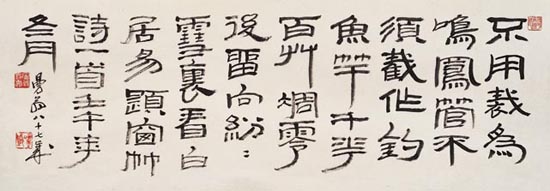 不用裁為
鳴鳳管不
須截作釣
魚竿千花
百艸凋零
後留向紛〻
雪裏看白
居易題窗竹
詩一首壬午年
冬月
曼翁八十七歲